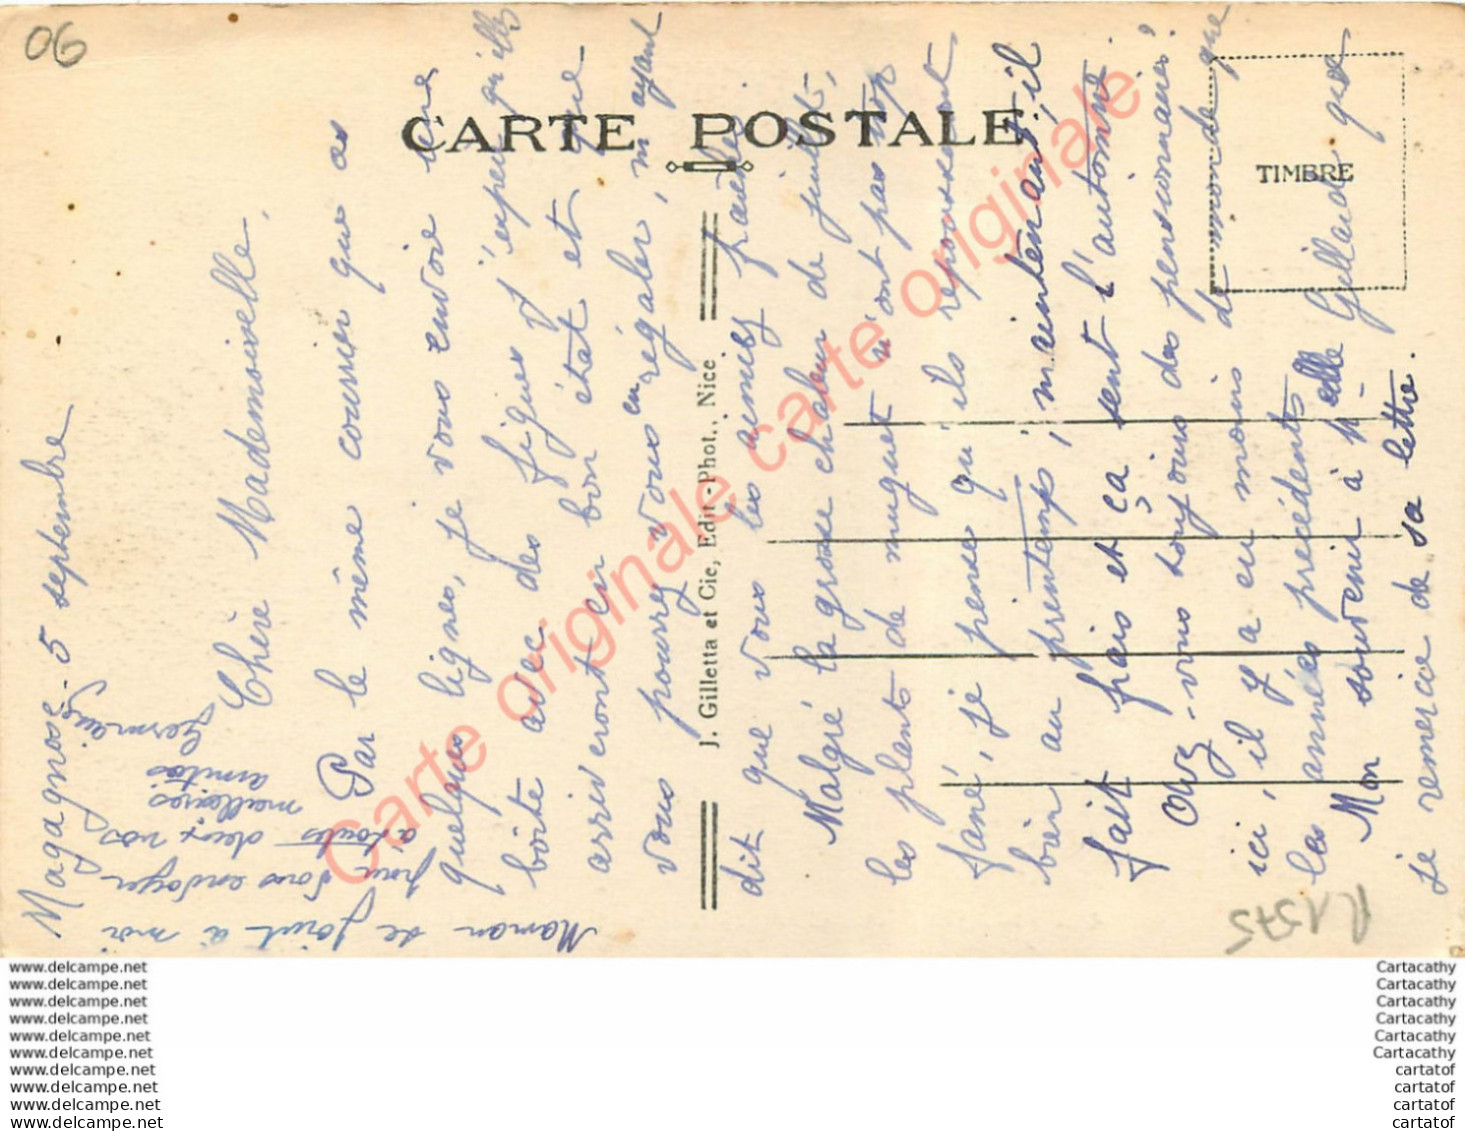 06
CARTE POSTALE
TIMBRE
J. Gilletta et Cie, Edit.-Phot., Nice
Magagnosc 5 septembre
Chère Mademoiselle,
Par le même courrier que ces
quelques lignes, je vous envoie une
boîte avec des figues j'espère qu'elles
arriveront en bon état et que
vous pourrez vous en régaler, m'ayant
dit que vous les aimiez
Malgré la grosse chaleur de juillet,
les plants de muguet n'ont pas trop
fané, je pense qu'ils repousseront
bien au printemps, maintenant, il
fait frais et ça sent l'automne.
Avez-vous toujours des pensionnaires?
ici, il y a eu moins de monde que
les années précédentes
Mon souvenir à Melle Gillaud que
je remercie de sa lettre.
Maman se joint à moi
pour vous envoyer
à toutes deux nos
meilleures
amitiés
Germaine
R1575
Carte originale carte originale carte originale
www.delcampe.net
www.delcampe.net
www.delcampe.net
www.delcampe.net
www.delcampe.net
www.delcampe.net
www.delcampe.net
www.delcampe.net
www.delcampe.net
www.delcampe.net
Cartacathy
Cartacathy
Cartacathy
Cartacathy
Cartacathy
Cartacathy
cartatof
cartatof
cartatof
cartatof